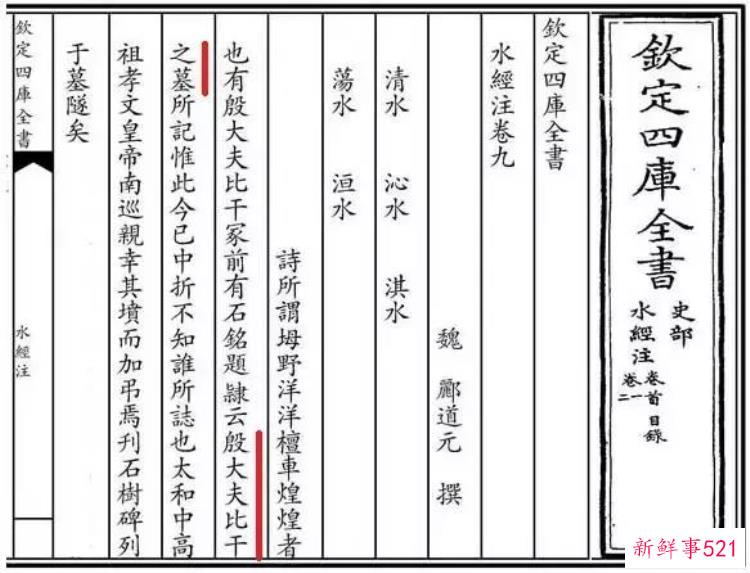 欽定四庫全書
史部
水經注
卷首 目錄
卷一
二
欽定四庫全書
水經注卷九
魏 酈道元 撰
清水 沁水 淇水
蕩水 洹水
詩所謂坶野洋洋檀車煌煌者
也有殷大夫比干冢前有石銘題隸云殷大夫比干
之墓所記惟此今已中折不知誰所誌也太和中高
祖孝文皇帝南巡親幸其墳而加弔焉刋石樹碑列
于墓隧矣
欽定四庫全書
水經注
新鲜事521